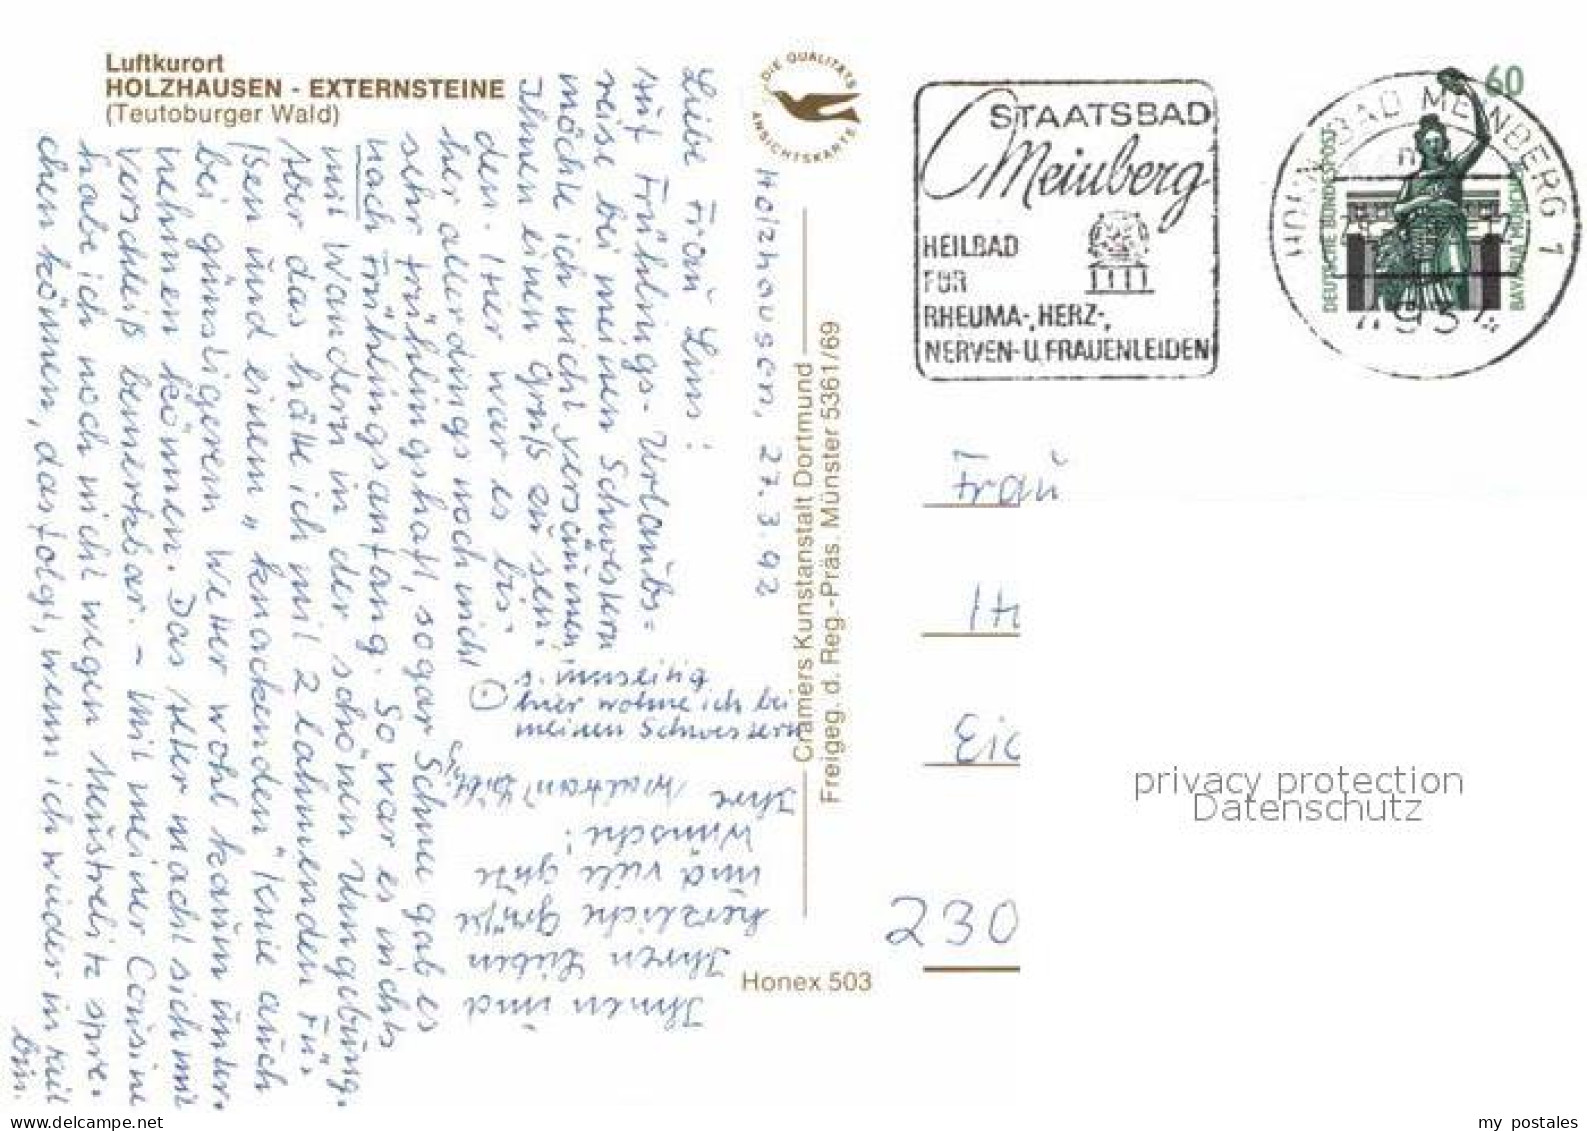 Luftkurort
HOLZHAUSEN - EXTERNSTEINE
(Teutoburger Wald)
DIE QUALITÄTS
ANSICHTSKARTE
Holzhausen, 27.3.92
Liebe Frau
Auf Frühlings-Urlaubs=
reise bei meinen Schwestern
möchte ich nicht versäumen,
Ihnen einen Gruß zu sen=
den. Hier war es bis=
her allerdings noch nicht
sehr frühlingshaft, sogar Schnee gab es
nach Frühlingsanfang. So war es nichts
mit Wandern in der schönen Umgebung.
Aber das hätte ich mit 2 lahmenden Fü=
ßen und einem „knackenden" Knie auch
bei günstigerem Wetter wohl kaum unter=
nehmen können. Das Alter macht sich mit
Verschleiß bemerkbar. - Mit meiner Cousine
habe ich noch nicht wegen Neustrelitz spre=
chen können, das folgt, wenn ich wieder in
bin.
hier wohne ich bei
meinen Schwestern
Ihnen und
Ihren Lieben
herzliche Grüße
und viele gute
Wünsche!
Ihre
Cramers Kunstanstalt Dortmund
Freigeg. d. Reg.-Präs. Münster 5361/69
Honex 503
STAATSBAD
Meinberg
HEILBAD
FÜR
RHEUMA-, HERZ-,
NERVEN- U. FRAUENLEIDEN
60
DEUTSCHE BUNDESPOST
BAVARIA MÜNCHEN
HORN-BAD MEINBERG 1
Frau
Eic
230
privacy protection
Datenschutz
my_postales